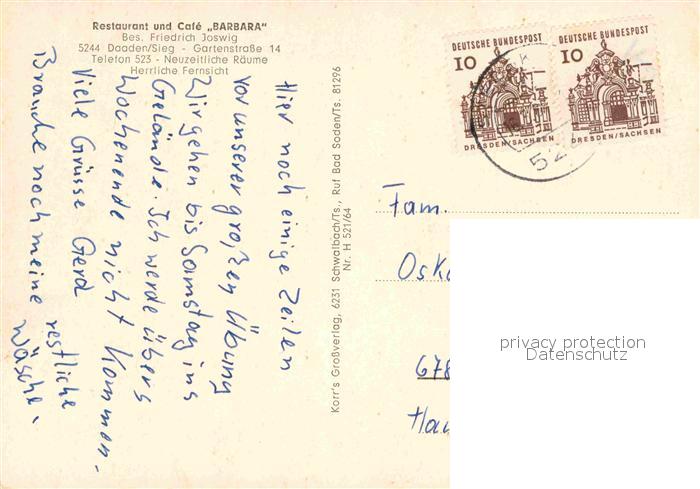 Restaurant und Café „BARBARA"
Bes. Friedrich Joswig
5244 Daaden/Sieg - Gartenstraße 14
Telefon 523 - Neuzeitliche Räume
Herrliche Fernsicht
Hier noch einige Zeilen
vor unserer großen Übung
Wir gehen bis Samstag ins
Gelände. Ich werde übers
Wochenende nicht kommen.
Viele Grüsse Gerd
Brauche noch meine restliche
Wäsche.
Korr's Großverlag, 6231 Schwalbach/Ts., Ruf Bad Soden/Ts. 81296
Nr. H 521/64
DEUTSCHE BUNDESPOST
10
DRESDEN/SACHSEN
DEUTSCHE BUNDESPOST
10
DRESDEN/SACHSEN
Fam.
Oska
678
Hau
privacy protection
Datenschutz